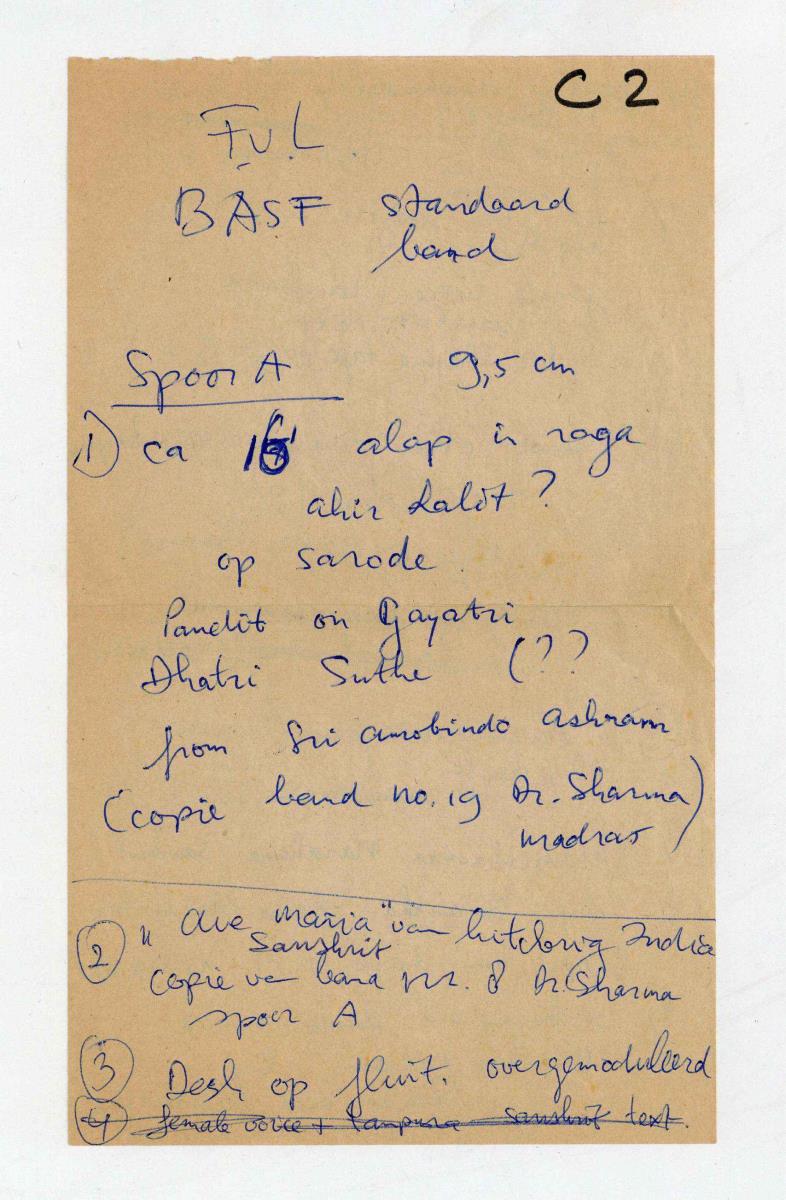 C 2
F.U.L.
BASF standaard
band
Spoor A 9,5 cm
1) ca 16' alap in raga
ahir Lalit ?
op sarode
Pandit on Gayatri
Dhatri Suthe (??
from Sri Aurobindo Ashram
(copie band no. 19 Dr. Sharma)
madras
2 " Ave Maria" van India
Sanskrit
copie van band nr. 8 Dr. Sharma
spoor A
3 Desh op fluit. overgemoduleerd
4 female voice + tanpura sanskrit text.